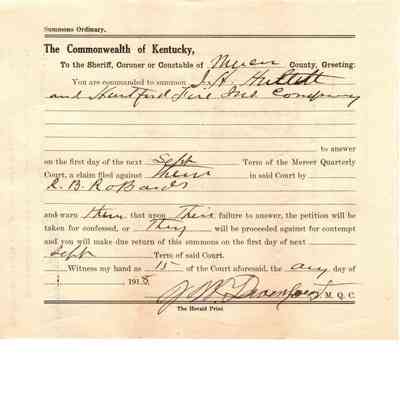 Summons Ordinary.
The Commonwealth of Kentucky,
To the Sheriff, Coroner or Constable of Mercer County, Greeting:
You are commanded to summon J. H. Hulett
and Hartford Fire Ins Company
to answer
on the first day of the next Sept Term of the Mercer Quarterly
Court, a claim filed against them in said Court by
R. B. RoBards
and warn them that upon Their failure to answer, the petition will be
taken for confessed, or They will be proceeded against for contempt
and you will make due return of this summons on the first day of next
Sept Term of said Court.
Witness my hand as 15 of the Court aforesaid, the Aug day of
1915.
J. W. Davenport J. M. Q. C.
The Herald Print